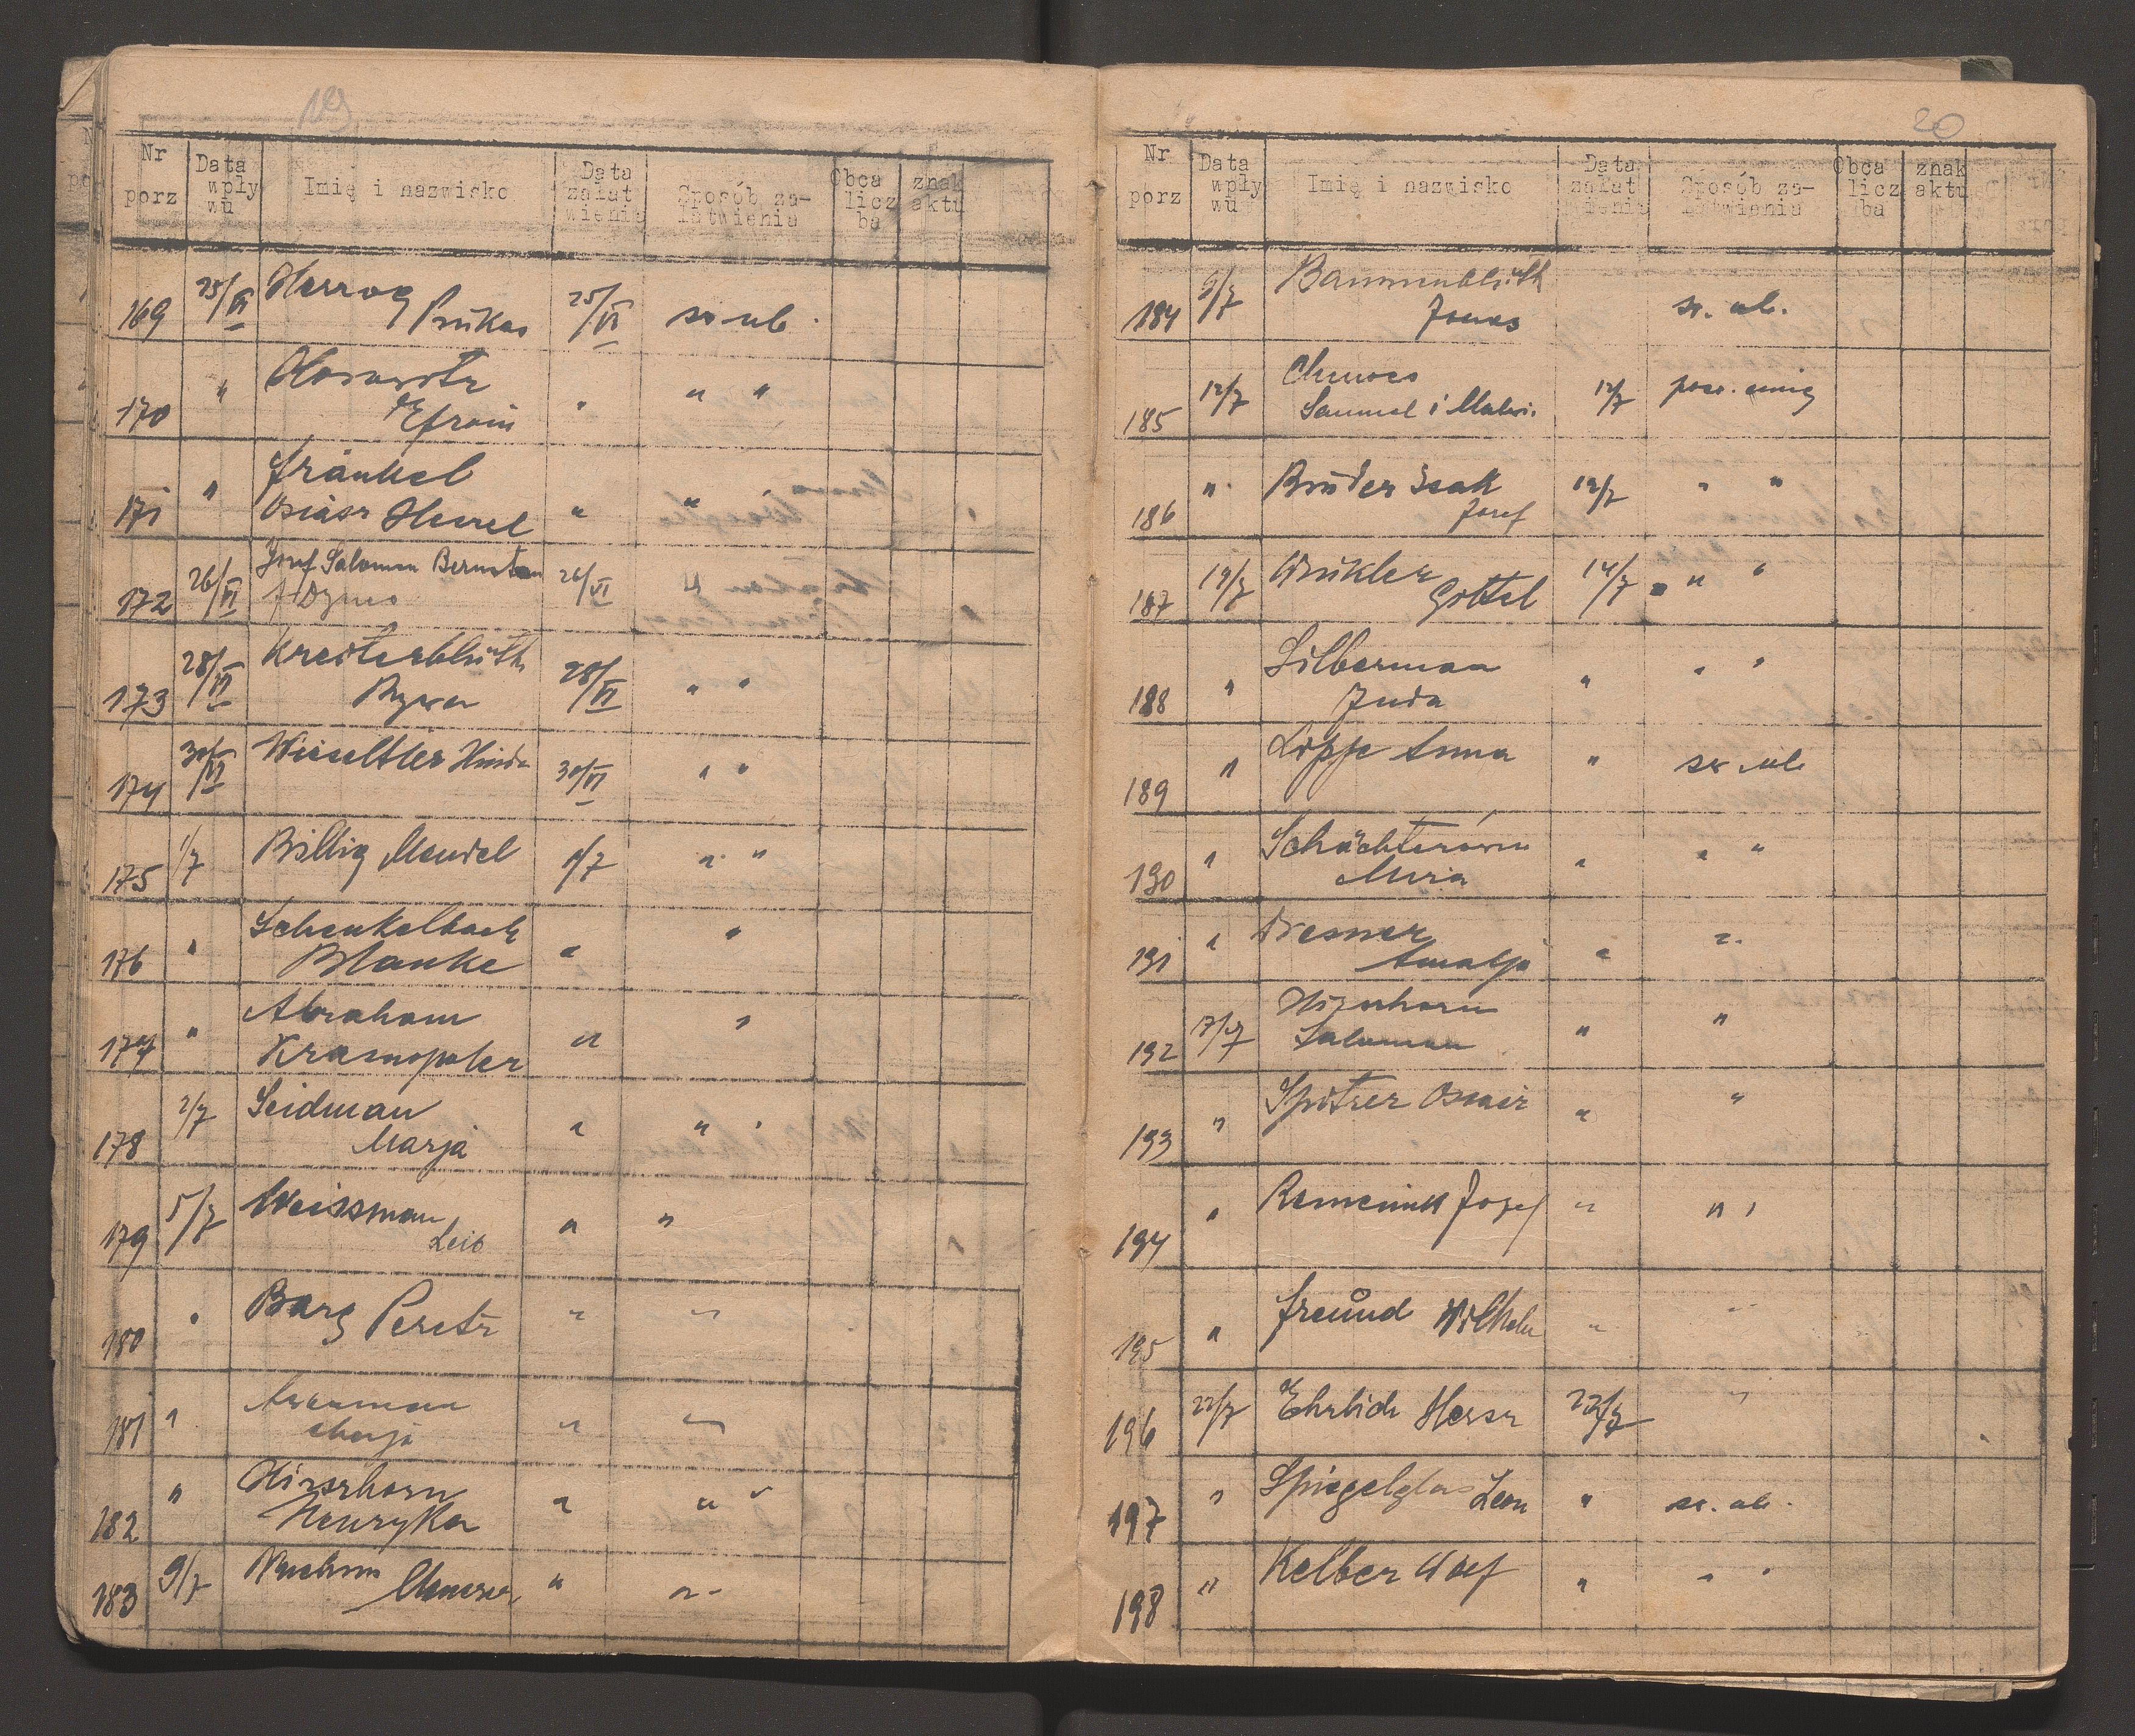 19
Nr porz
Data wpły wu
Imię i nazwisko
Data załat wienia
Sposób za- łatwienia
Obca licz ba
znak aktu
169 25/VI Herzog Pinkas 25/VI św. ub.
170 " Horowitz Efroim " " "
171 " Fränkel Osiasz Hersel " " "
172 26/VI Josef Salomon 26/VI "
173 28/VI Kreiterblüth 28/VI " "
174 30/VI Wieseltier Hinda 30/VI " "
175 1/7 Billig Mendel 1/7 " "
176 " Schenkelbach Blanka " "
177 " Abraham Krasnopoler " "
178 2/7 Seidman Marja " " "
179 5/7 Weissman Leib " "
180 " Barg Peretz " "
181 " " "
182 " Hirszhorn Henryka " " "
183 9/7 " "
20
Nr porz
Data wpły wu
Imię i nazwisko
Data załat wienia
Sposób za- łatwienia
Obca licz ba
znak aktu
184 9/7 Baumenblüth Jonas św. ub.
185 12/7 Samuel i 12/7
186 " Bruder Izak Josef 12/7 " "
187 14/7 Winkler Gittel 14/7 " "
188 " Silberman Juda " " "
189 " Lippe Anna " św. ub.
190 " Schächterówna " " "
191 " Dresner Amalja " "
192 17/7 Salomon " "
193 " Spitzer " "
194 " Josef " " "
195 " Freund Wilhelm " "
196 22/7 Ehrlich Hersz 22/7 "
197 " Spiegelglas Leon " św. ub.
198 " Kelber Wolf " " "